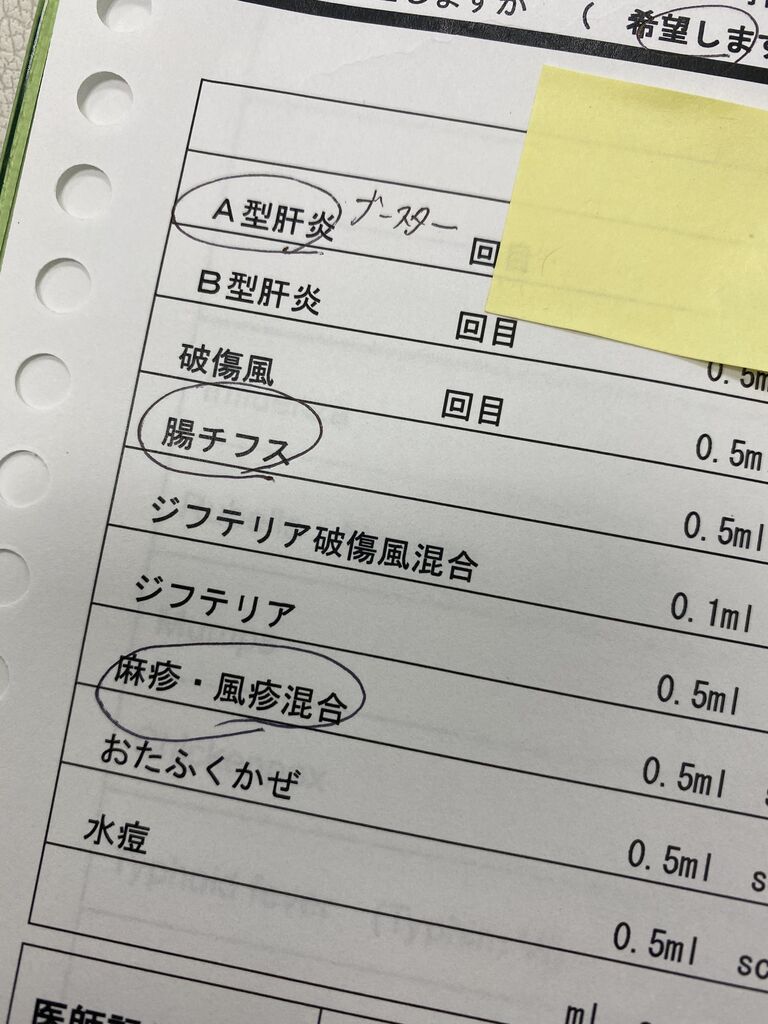 しますか ( 希望します
A型肝炎 ブースター 回目
B型肝炎 回目 0.5m
破傷風 回目 0.5m
腸チフス 0.5ml
ジフテリア破傷風混合 0.1ml
ジフテリア 0.5ml
麻疹・風疹混合 0.5ml
おたふくかぜ 0.5ml s
水痘 0.5ml sc
ml
医師記